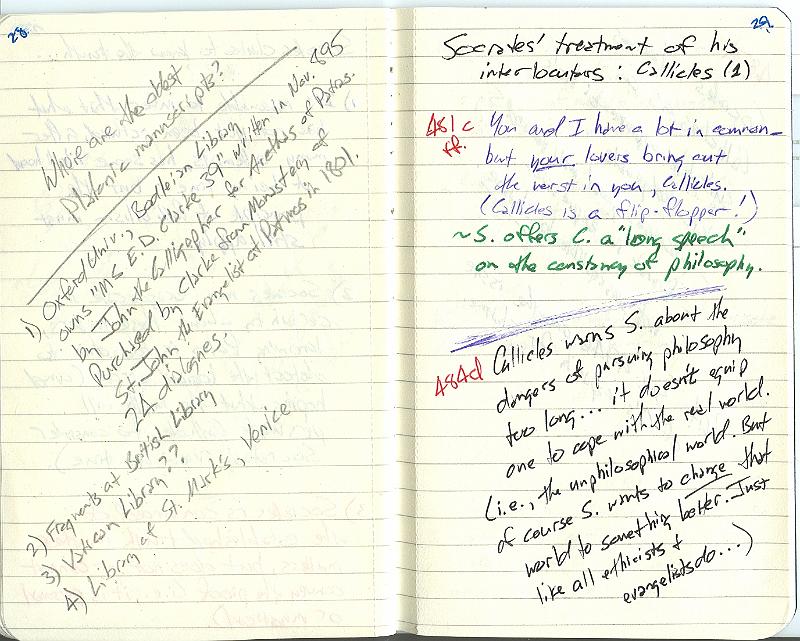 28
Where are the oldest
Platonic manuscripts?
1) Oxford Univ., Bodleian Library
owns "MS E.D. Clarke 39" written in Nov. 895
by John the Calligrapher for Arethas of Patras.
Purchased by Clarke from Monastery of
St. John the Evangelist at Patmos in 1801.
24 dialogues.
2) Fragments at British Library
3) Vatican Library??
4) Library of St. Mark's, Venice
29
Socrates' treatment of his
interlocutors: Callicles (1)
481c
ff.
You and I have a lot in common –
but your lovers bring out
the worst in you, Callicles.
(Callicles is a flip-flopper!)
~S. offers C. a "long speech"
on the constancy of philosophy.
484d Callicles warns S. about the
dangers of pursuing philosophy
too long... it doesn't equip
one to cope with the real world.
(i.e., the unphilosophical world. But
of course S. wants to change that
world to something better. Just
like all ethicists +
evangelists do...)